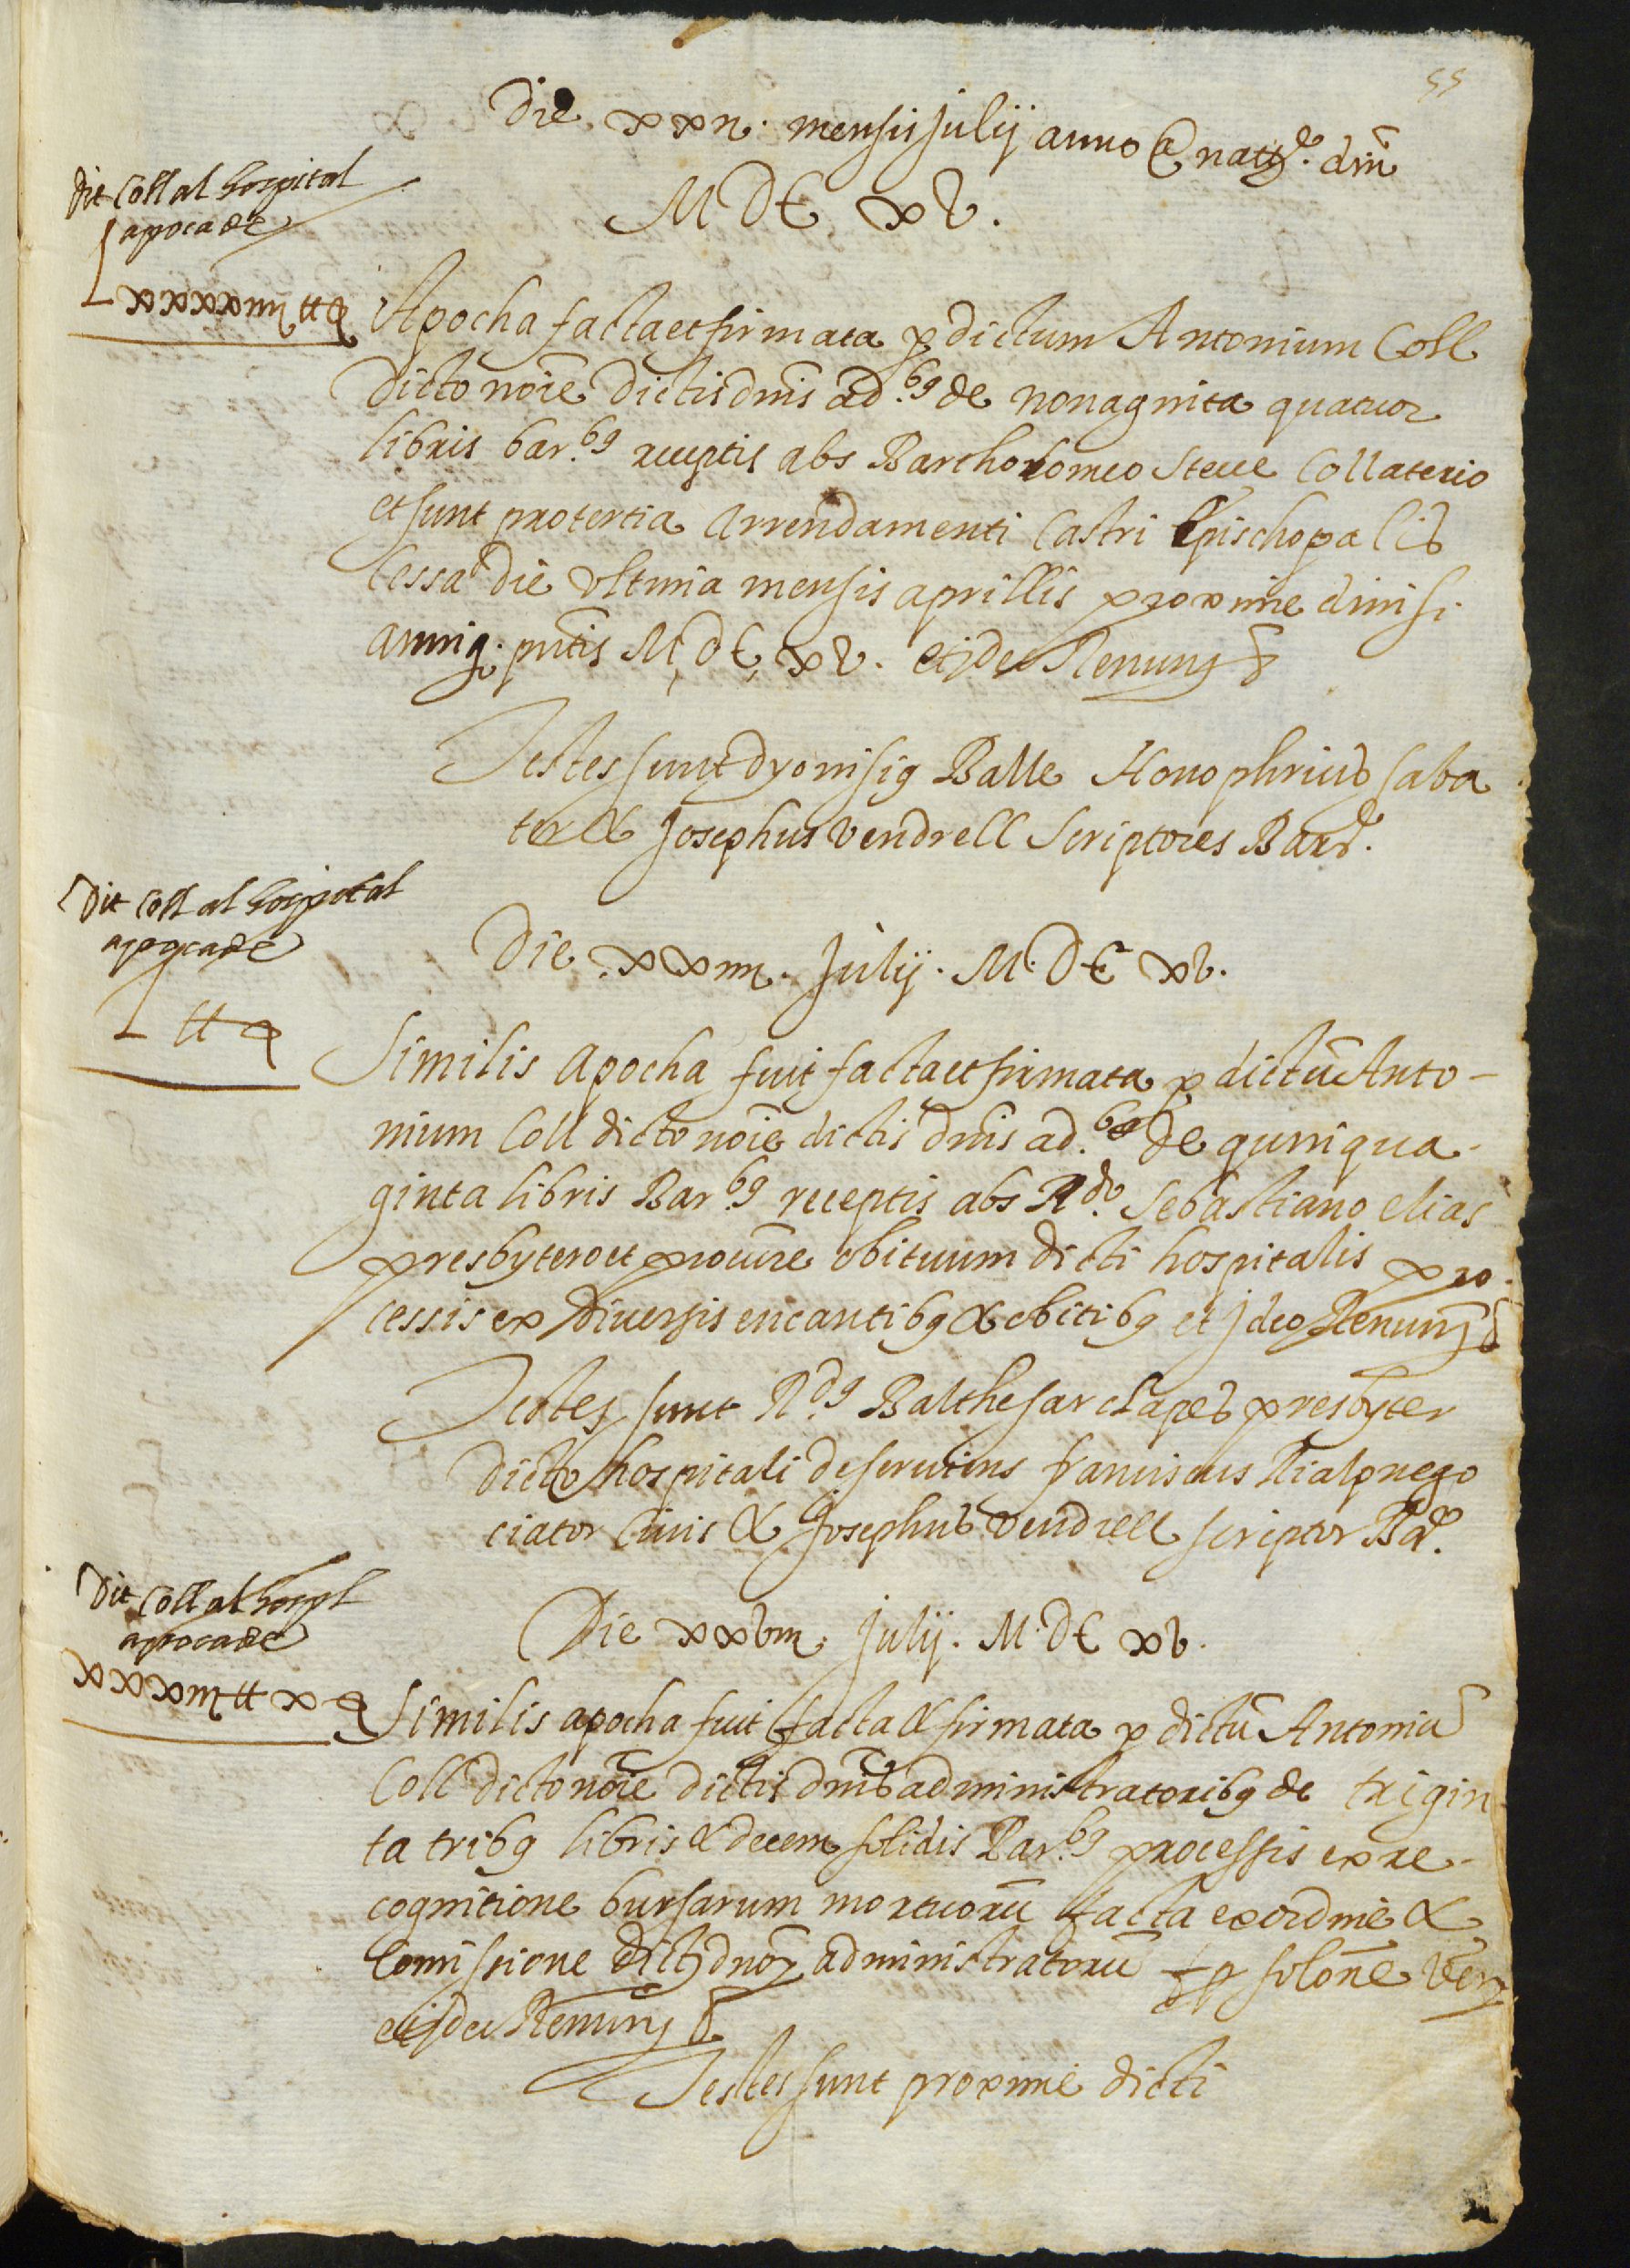 55
Die. xxii. mensis Julij anno a natte. dni
M DC xv.
Dit Coll al hospital
apoca de
xxxxiiij tt q
Apocha facta et firmata p dictum Antonium Coll
dicto noie dictis dnis ad.bq de nonaginta quatuor
libris bar.bq receptis abs Bartholomeo Steue Collaterio
et sunt pro tertia arrendamenti Castri Epischopalis
cessa die vltima mensis aprillis proxime dimissi
anniq. pntis M, DC, xv. et jdeo Renuns &
Testes sunt dyonisiq Balle Honophrius saba
ter & Josephus Vendrell Scriptores Bare.
Dit Coll al hospital
apoca de
tt q
Die .xxiiij. Julij. M. DC xv.
Similis apocha fuit facta et firmata p dictū Anto-
nium Coll dicto noie dictis dnis ad.bq de quinqua-
ginta libris Bar.bq receptis abs Rdo. Sebastiano elias
presbytero et procure obituum dicti hospitalis pro-
cessis ex diuersis encantibq & obitibq et Jdeo Renuns &
Testes sunt R.dq Balthesar clapes presbyter
dicto hospitali deseruiens franciscus Rialp nego
ciator Ciuis & Josephus vendrell scriptor Bae.
Dit Coll al hospl
apoca de
xxxiij tt x q
Die xxviij. Julij. M. DC xv.
Similis apocha fuit facta & firmata p dictū Antoniū
Coll dicto noie dictis dnis administratoribq de trigin
ta tribq libris & decem solidis Bar.bq processis ex re-
cognitione bursarum mortuorū facta ex ordine &
Comissione dictz dnoz administratorū
et jdeo Renuns &
Testes sunt proxime dicti